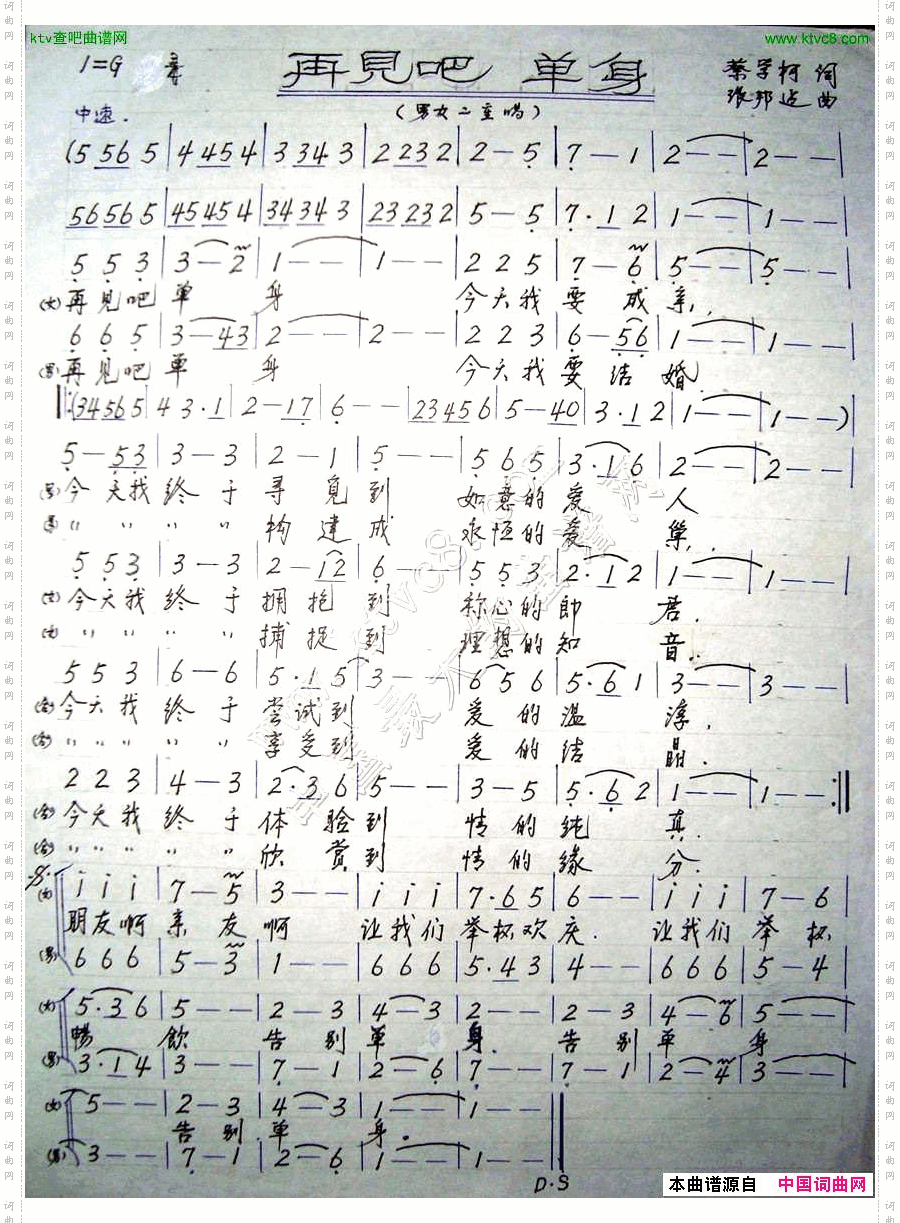 ktv查吧曲谱网
www.ktvc8.com
1=G
再見吧 单身
蔡学柯 词
张邦达 曲
中速.
(男女二重唱)
(5 56 5 | 4 45 4 | 3 34 3 | 2 23 2 | 2 — 5 | 7 — 1 | 2 — — | 2 — — |
56 56 5 | 45 45 4 | 34 34 3 | 23 23 2 | 5 — 5 | 7 · 1 2 | 1 — — | 1 — — |
5 5 3 | 3 — 2 | 1 — — | 1 — — | 2 2 5 | 7 — 6 | 5 — — | 5 — — |
(女) 再見吧 单 身 今天我 要 成 亲,
6 6 5 | 3 — 43 | 2 — — | 2 — — | 2 2 3 | 6 — 56 | 1 — — | 1 — — |
(男) 再見吧 单 身 今天我 要 结 婚.
‖:(34 56 5 | 4 3 · 1 | 2 — 17 | 6 — — | 23 45 6 | 5 — 40 | 3 · 1 2 | 1 — — | 1 — —)
5 — 53 | 3 — 3 | 2 — 1 | 5 — — | 5 6 5 | 3 · 1 6 | 2 — — | 2 — — |
(男) 今 天我 终 于 寻 覓 到 如意的 爱 人
(男) " " " " " 构 建 成 永恒的 爱 巢,
5 5 3 | 3 — 3 | 2 — 12 | 6 — — | 5 5 3 | 2 · 1 2 | 1 — — | 1 — — |
(女) 今天我 终 于 拥 抱 到 称心的 郎 君.
(女) " " " " " 捕 捉 到 理想的 知 音.
5 5 3 | 6 — 6 | 5 · 1 5 | 3 — — | 6 5 6 | 5 · 6 1 | 3 — — | 3 — — |
(合) 今天我 终 于 尝试到 爱 的 温 淳,
(合) " " " " " 享受到 爱 的 结 晶.
2 2 3 | 4 — 3 | 2 · 3 6 | 5 — — | 3 — 5 | 5 · 6 2 | 1 — — | 1 — — :‖
(合) 今天我 终 于 体 验到 情 的 纯 真.
(合) " " " " " 欣 赏到 情 的 缘 分.
(女) i i i | 7 — 5 | 3 — — | i i i | 7 · 6 5 | 6 — — | i i i | 7 — 6 |
朋友啊 亲 友 啊 让我们 举杯欢 庆. 让我们 举 杯
(男) 6 6 6 | 5 — 3 | 1 — — | 6 6 6 | 5 · 4 3 | 4 — — | 6 6 6 | 5 — 4 |
(女) 5 · 3 6 | 5 — — | 2 — 3 | 4 — 3 | 2 — — | 2 — 3 | 4 — 6 | 5 — — |
暢 飲 告 别 单 身. 告 别 单 身
(男) 3 · 1 4 | 3 — — | 7 — 1 | 2 — 6 | 7 — — | 7 — 1 | 2 — 4 | 3 — — |
(女) 5 — — | 2 — 3 | 4 — 3 | 1 — — | 1 — — ‖
告 别 单 身.
(男) 3 — — | 7 — 1 | 2 — 6 | 1 — — | 1 — — ‖
D·S
本曲谱源自 中国词曲网